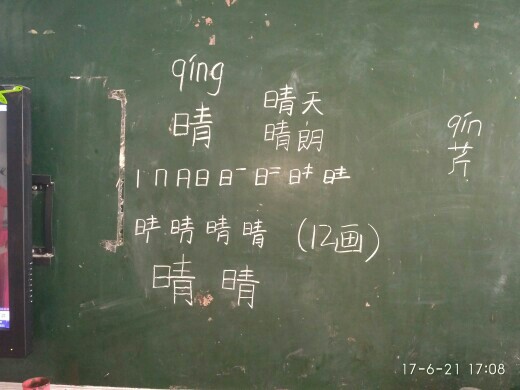 qíng
晴 晴天
晴朗
丨 冂 日 日 日一 日二 日キ 日龶
晴 晴 晴 晴 (12画)
晴 晴
qín
芹
17-6-21 17:08